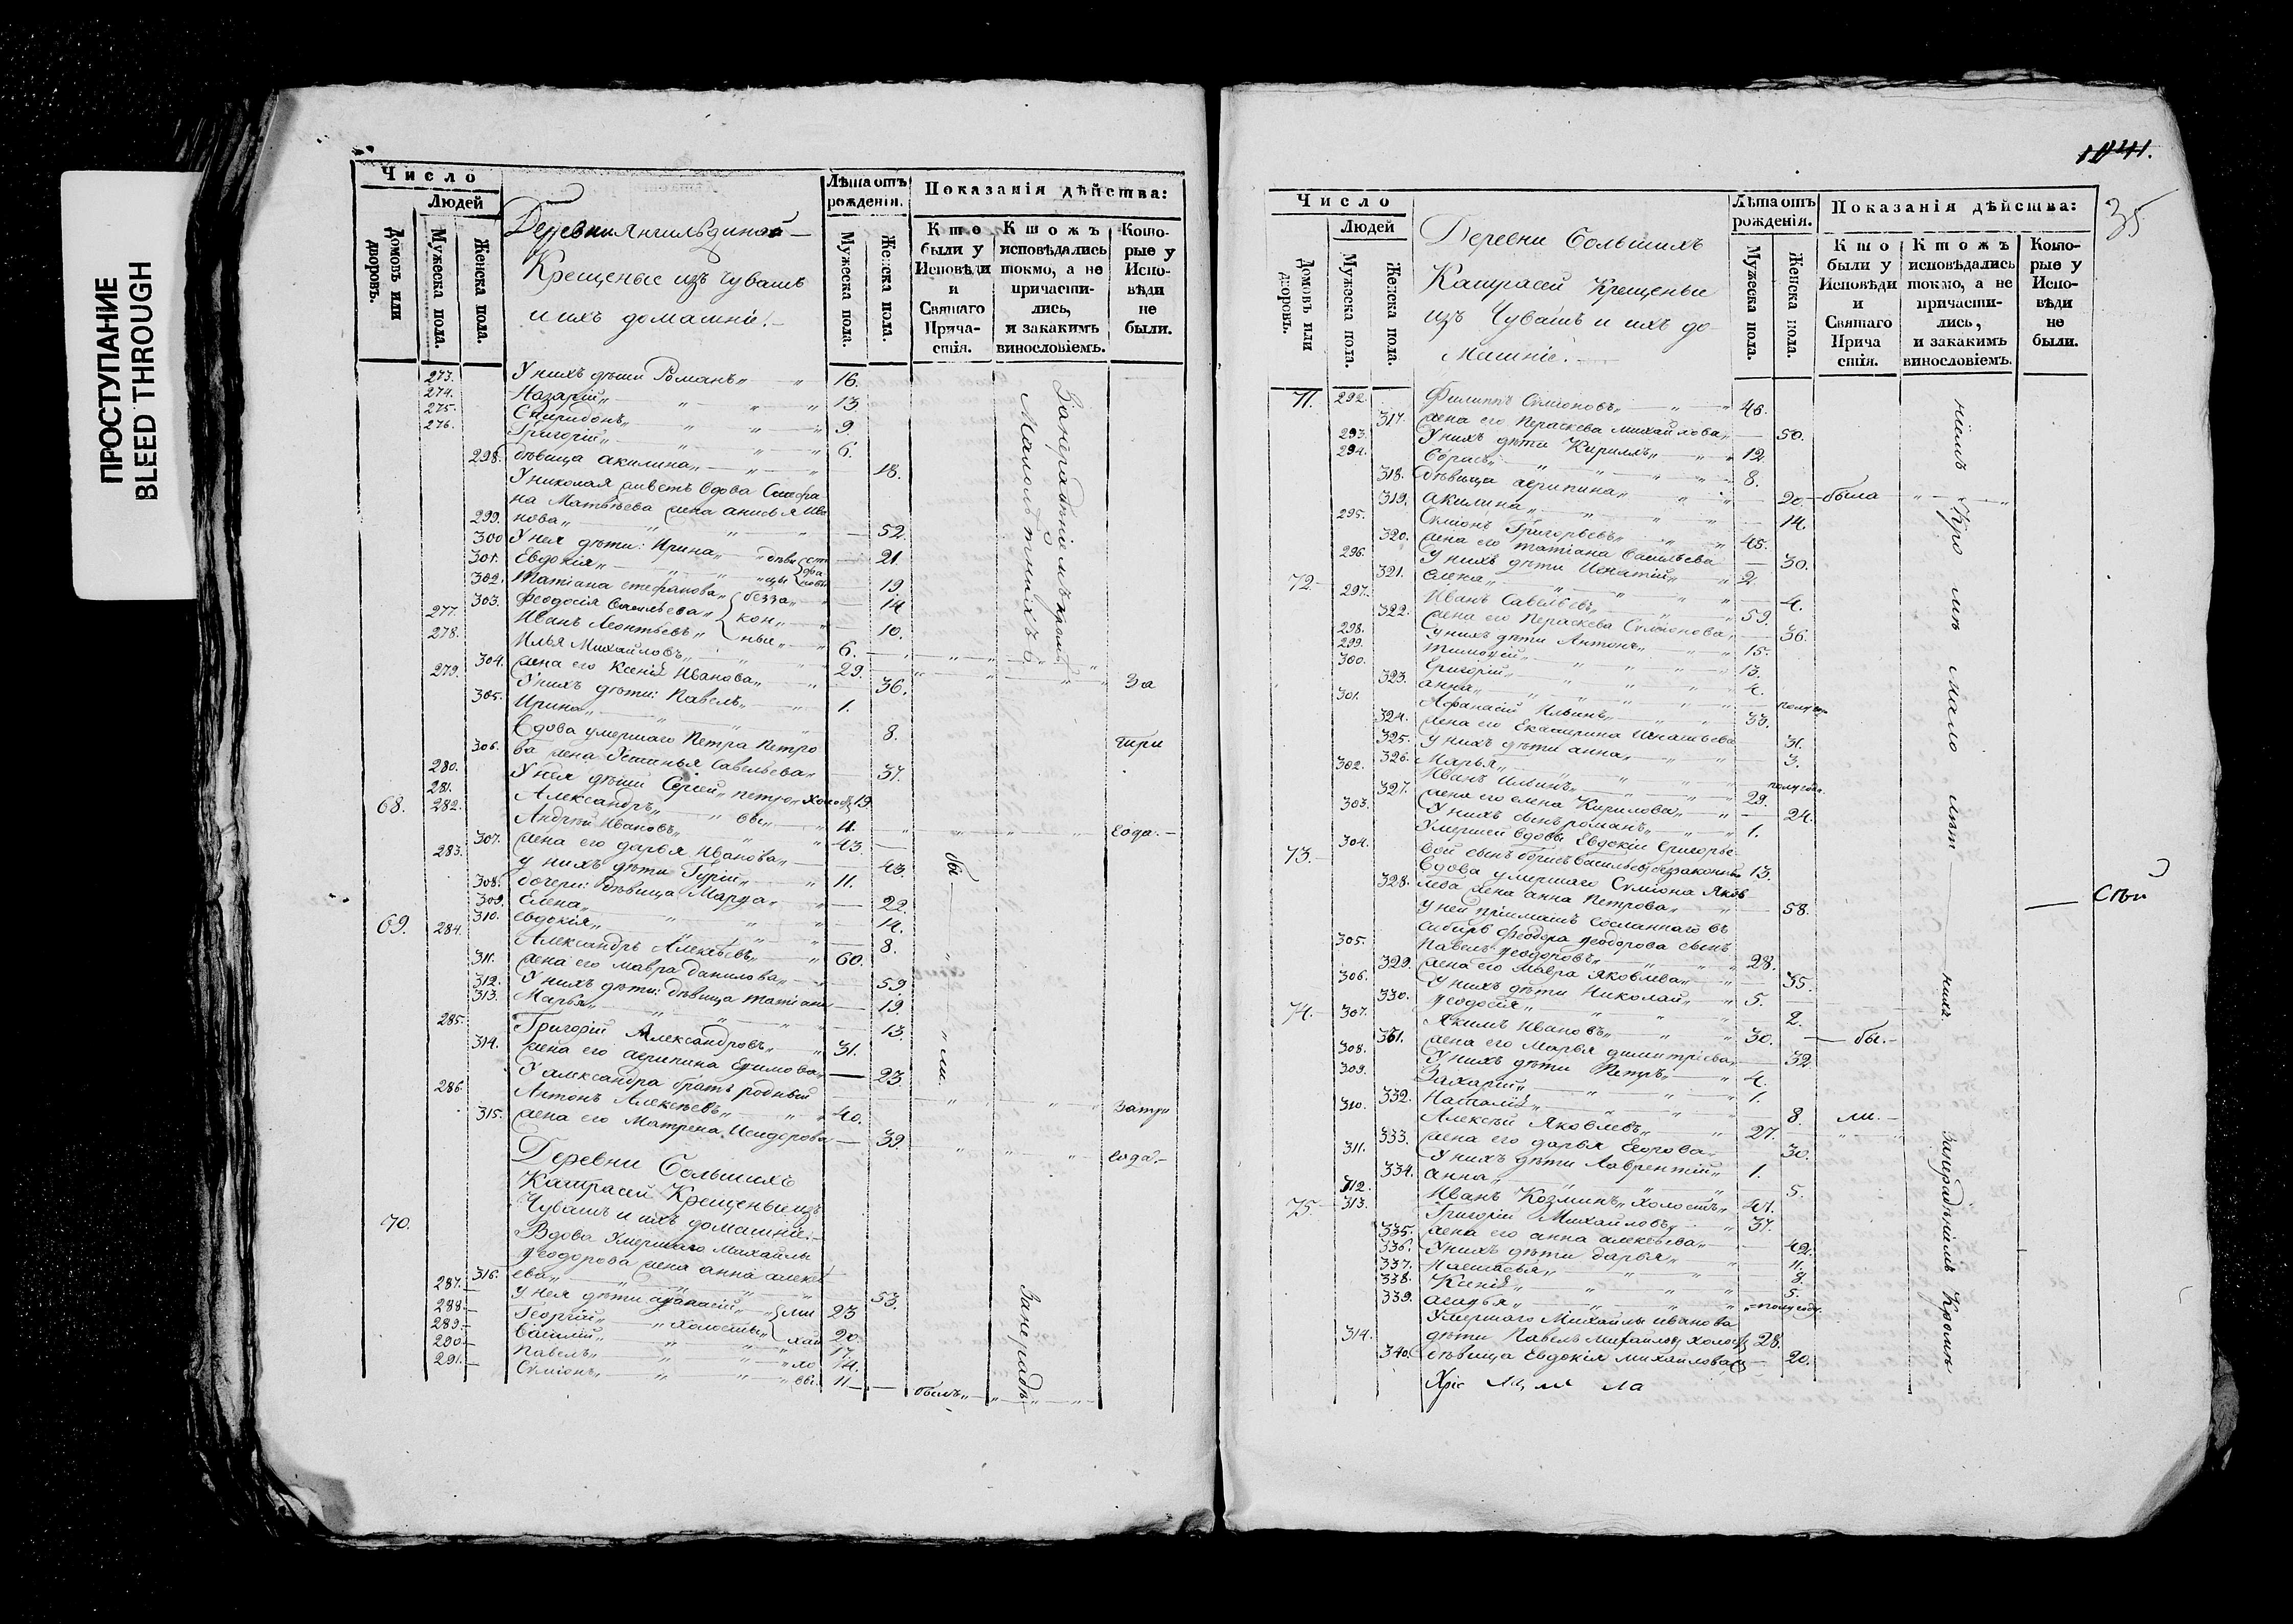 ПРОСТУПАНИЕ
BLEED THROUGH
Число
Людей
Домовъ или дворовъ.
Мужеска пола.
Женска пола.
Деревни Янгильдиной
Крещеные изъ чувашъ
и ихъ домашніе.
Лѣта отъ рожденія.
Мужеска пола.
Женска пола.
Показанія дѣйства:
Кто были у Исповѣди и Святаго Причастія.
Ктожъ исповѣдались токмо, а не причастились, и закакимъ винословіемъ.
Которые у Исповѣди не были.
273. У нихъ дѣти Романъ 16.
274. Назарій 13
275. Спиридонъ 9.
276. Григорій 6.
298. дѣвица акилина 18.
У николая живетъ вдова Стефа
на Матвѣева жена анисья Ива
299. нова 52.
300 У нея дѣти: Ирина 21.
301. Евдокія 19
302. Татіана стефанова 14
303. Феодосія Васильева 10.
277. Иванъ Леонтьевъ 6.
278. Илья Михайловъ 29.
304. жена его Ксенія Иванова 36.
279. У нихъ дѣти: Павелъ 1.
305. Ирина 8.
Вдова умершаго Петра Петро
306. ва жена Устинья Савельева 37.
280. У нея дѣти Сергей 19
281. Александръ 11.
68. 282. Андрей Ивановъ 43.
307. жена его дарья Иванова 43.
283. у нихъ дѣти Гурій 11.
308. дочери: дѣвица Марфа 22.
309. Елена 14.
310. Евдокія 8.
69. 284. Александръ Алексѣевъ 60.
311. жена его мавра данилова 59
312. У нихъ дѣти: дѣвица татіана 19.
313. Марья 13.
285. Григорій Александровъ 31.
314. жена его агрипина Ефимова 23.
У александра братъ родный
286. Антонъ Алексѣевъ 40.
315. жена его Матрена Исидорова 39.
Деревни Большихъ
Катрасей Крещеные изъ
Чувашъ и ихъ домашніе.
70. Вдова умершаго Михайлы
Ѳеодорова жена анна алексѣ
316. ева 53.
287. У нея дѣти афанасій 23
288. Георгій холосты 20
289. Василій 17.
290 Павелъ 14.
291. Симіонъ 11
были
За нерадѣніемъ кромѣ
Малолѣтнихъ
За
тири
года.
бы
ли.
За три
года.
былъ
За нерадѣ
1041.
35
Число
Людей
Домовъ или дворовъ.
Мужеска пола
Женска пола.
Деревни Большихъ
Катрасей Крещеные
изъ Чувашъ и ихъ до
машніе.
Лѣта отъ рожденія.
Мужеска пола.
Женска пола.
Показанія дѣйства:
Кто были у Исповѣди и Святаго Прича стія.
Ктожъ исповѣдались токмо, а не причастились, и закакимъ винословіемъ.
Которые у Исповѣди не были.
71. 292. Филиппъ Симіоновъ 46.
317. жена его Параскева михайлова 50.
293. У нихъ дѣти Кириллъ 12
294. Борисъ 8.
318. дѣвица агрипина 20 была
319. акилина 14.
295. Симіонъ Григорьевъ 45.
320. жена его татіана Васильева 30.
296. У нихъ дѣти Игнатій 2.
321. елена 4.
72. 297. Иванъ Савельевъ 59.
322. жена его Параскева Симіонова 36.
298. у нихъ дѣти Антонъ 15.
299. Тимофей 13.
300. Григорій 4.
323. анна полугода
301. Афанасій Ильинъ 33.
324. жена его Екатерина Игнатьева 31.
325. У нихъ дѣти анна 3.
326. Марья полугода.
302. Иванъ Ильинъ 29.
327. жена его елена Кирилова 24.
303. У нихъ сынъ романъ 1.
Умершей вдовы Евдокіи Григорье
304. вой сынъ борисъ Васильевъ безаконный 13.
73. Вдова умершаго Симіона Яков
328. лева жена анна Петрова 58.
У ней пріимышъ Сосланнаго въ
сибирь Феодора Ѳеодорова сынъ
305. Павелъ Ѳеодоровъ 28.
329. жена его Мавра Яковлева 35.
306. У нихъ дѣти Николай 5.
330. Ѳеодосія 2.
74. 307. Якимъ Ивановъ 30. бы.
331. жена его Марья димитріева 32
308. У нихъ дѣти Петръ 4.
309. Захарій 1.
332. Наталія 8. ли.
310. Алексѣй Яковлевъ 27.
333. жена его дарья Егорова 30.
311. У нихъ дѣти Лаврентій 1.
334. анна 5.
312. Иванъ Козминъ холостъ 41.
75. 313. Григорій Михайловъ 37.
335. жена его анна алексѣева 42.
336. У нихъ дѣти дарья 11.
337. Настасья 8.
338. Ксенія 5.
339. агафья полугоду.
Умершаго Михайлы иванова
314. дѣти Павелъ михайловъ холостъ 28.
340. дѣвица Евдокія михайлова 20.
ніемъ Кро мѣ мало лѣт нихъ.
За нерадѣніемъ Кромѣ